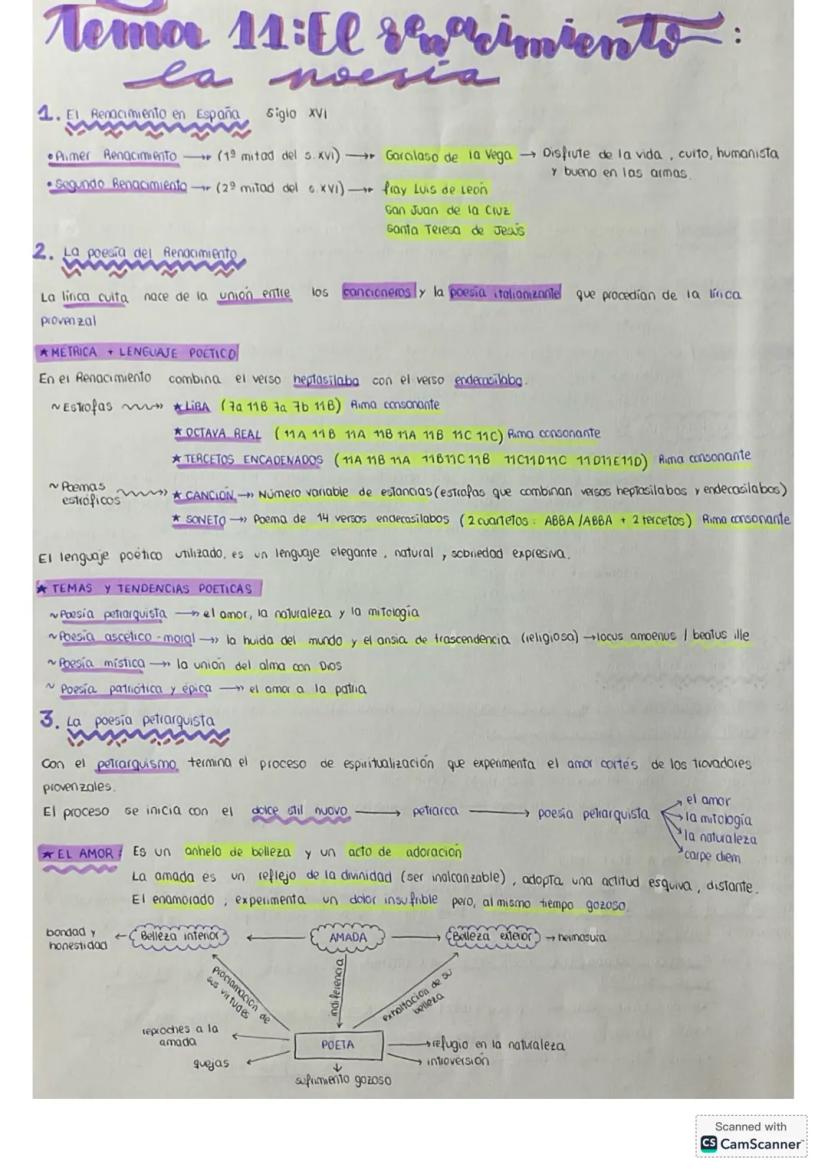 Tema 11: El renacimiento:
la poesía
1. El Renacimiento en España Siglo XVI
• Primer Renacimiento → (1ª mitad del s. XVI) → Garcilaso de la Vega → Disfrute de la vida, culto, humanista
y bueno en las armas.
• Segundo Renacimiento → (2ª mitad del s. XVI) → fray Luis de León
San Juan de la Cruz
Santa Teresa de Jesús
2. La poesía del Renacimiento
La lírica culta nace de la unión entre los cancioneros y la poesía italianizante que procedían de la lírica
provenzal
★ METRICA + LENGUAJE POÉTICO
En el Renacimiento combina el verso heptasílabo con el verso endecasílabo.
~ Estrofas → ★ LIRA (7a 11B 7a 7b 11B) Rima consonante
★ OCTAVA REAL (11A 11B 11A 11B 11A 11B 11C 11C) Rima consonante
★ TERCETOS ENCADENADOS (11A 11B 11A 11B11C11B 11C11D11C 11D11E11D) Rima consonante
~ Poemas
estróficos → ★ CANCIÓN → Número variable de estancias (estrofas que combinan versos heptasílabos y endecasílabos)
★ SONETO → Poema de 14 versos endecasílabos (2 cuartetos: ABBA/ABBA + 2 tercetos) Rima consonante
El lenguaje poético utilizado, es un lenguaje elegante, natural, sobriedad expresiva.
★ TEMAS Y TENDENCIAS POETICAS
~ Poesía petrarquista → el amor, la naturaleza y la mitología
~ Poesía ascético-moral → la huida del mundo y el ansia de trascendencia (religioso) → locus amoenus / beatus ille
~ Poesía mística → la unión del alma con Dios
~ Poesía patriótica y épica → el amor a la patria
3. La poesía petrarquista
Con el petrarquismo, termina el proceso de espiritualización que experimenta el amor cortés de los trovadores
provenzales.
El proceso se inicia con el dolce stil nuovo → petrarca → poesía petrarquista
el amor
la mitología
la naturaleza
carpe diem
★ EL AMOR: Es un anhelo de belleza y un acto de adoración
La amada es un reflejo de la divinidad (ser inalcanzable), adopta una actitud esquiva, distante.
El enamorado, experimenta un dolor insufrible pero, al mismo tiempo gozoso.
bondad y
honestidad ← Belleza interior ← AMADA → Belleza exterior → hermosura
proclamación de
sus virtudes
indiferencia
exhaltación de su
belleza
reproches a la
amada
quejas
POETA
→ refugio en la naturaleza
→ introversión
sufrimiento gozoso
Scanned with
CS CamScanner